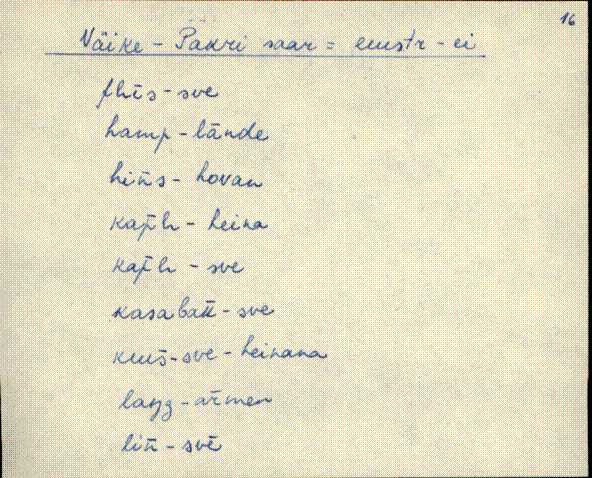 16
Väike - Pakri saar = eustr - ei
flīs - sve
hamp - lände
hin̄s - hovan
kap̄h - heina
kap̄h - sve
kasabatt - sve
kuus̄ - sve - heinana
laŋg - ar̄men
lin̄ - svē